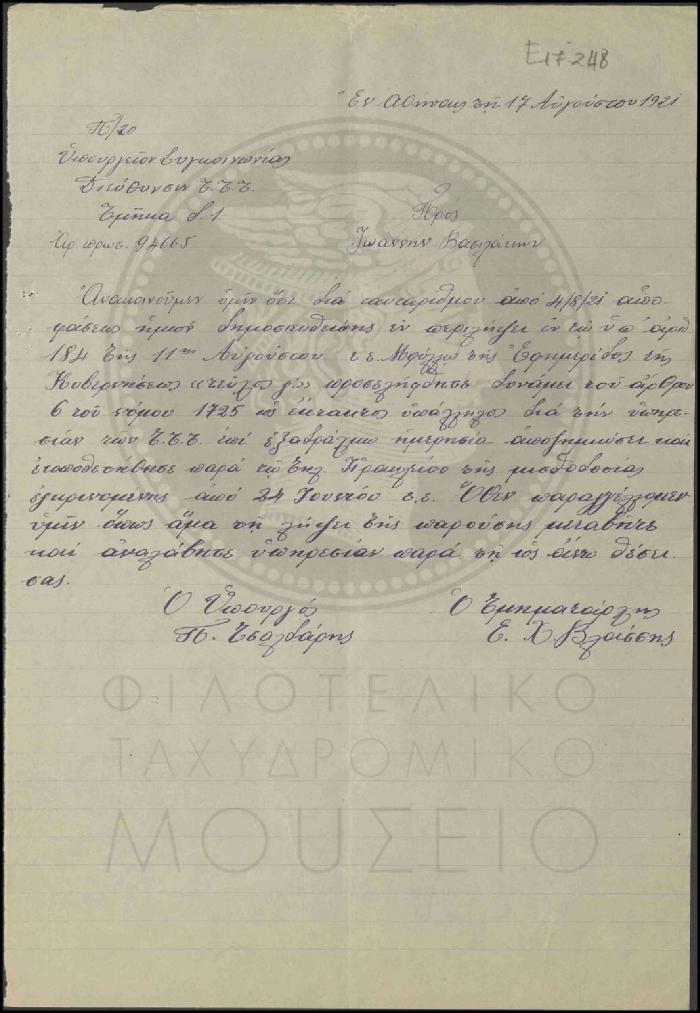 Ε17.248
Ἐν Ἀθήναις τῇ 17 Αὐγούστου 1921
Π/20
Ὑπουργεῖον Συγκοινωνίας
Διεύθυνσις Τ.Τ.Τ.
Τμῆμα
Πρὸς
Ἀρ. πρωτ. 94665
Ἰωάννην Βασιλάκην
Ἀνακοινοῦμεν ὑμῖν ὅτι διὰ ταυταρίθμου ἀπό 4/8/21 ἀπο-
φάσεως ἡμῶν δημοσιευθείσης ἐν περιλήψει ἐν τῷ ὑπ' ἀριθ
184 τῆς 11ης Αὐγούστου ἐ.ἔ. φύλλῳ τῆς Ἐφημερίδος τῆς
Κυβερνήσεως «τεῦχος γ» προσελήφθητε δυνάμει τοῦ ἄρθρου
6 τοῦ νόμου 1725 ὡς ἔκτακτος ὑπάλληλος διὰ τὴν ὑπηρε-
σίαν τῶν Τ.Τ.Τ. ἐπὶ ἑξαδράχμῳ ἡμερησίᾳ ἀποζημιώσει καὶ
ἐτοποθετήθητε παρὰ τῷ Τηλ. Ἡρακλείου τῆς μισθοδοσίας
ἐγκρινομένης ἀπό 24 Ἰουνίου ἐ.ἔ. Ὅθεν παραγγέλομεν
ὑμῖν ὅπως ἅμα τῇ λήψει τῆς παρούσης μεταβῆτε
καὶ ἀναλάβητε ὑπηρεσίαν παρὰ τῇ ὡς ἄνω θέσει
σας.
Ὁ Ὑπουργός
Ὁ Τμηματάρχης
Π. Τσαλδάρης
Ε. Χ. Βλάσσης
ΦΙΛΟΤΕΛΙΚΟ
ΤΑΧΥΔΡΟΜΙΚΟ
ΜΟΥΣΕΙΟ